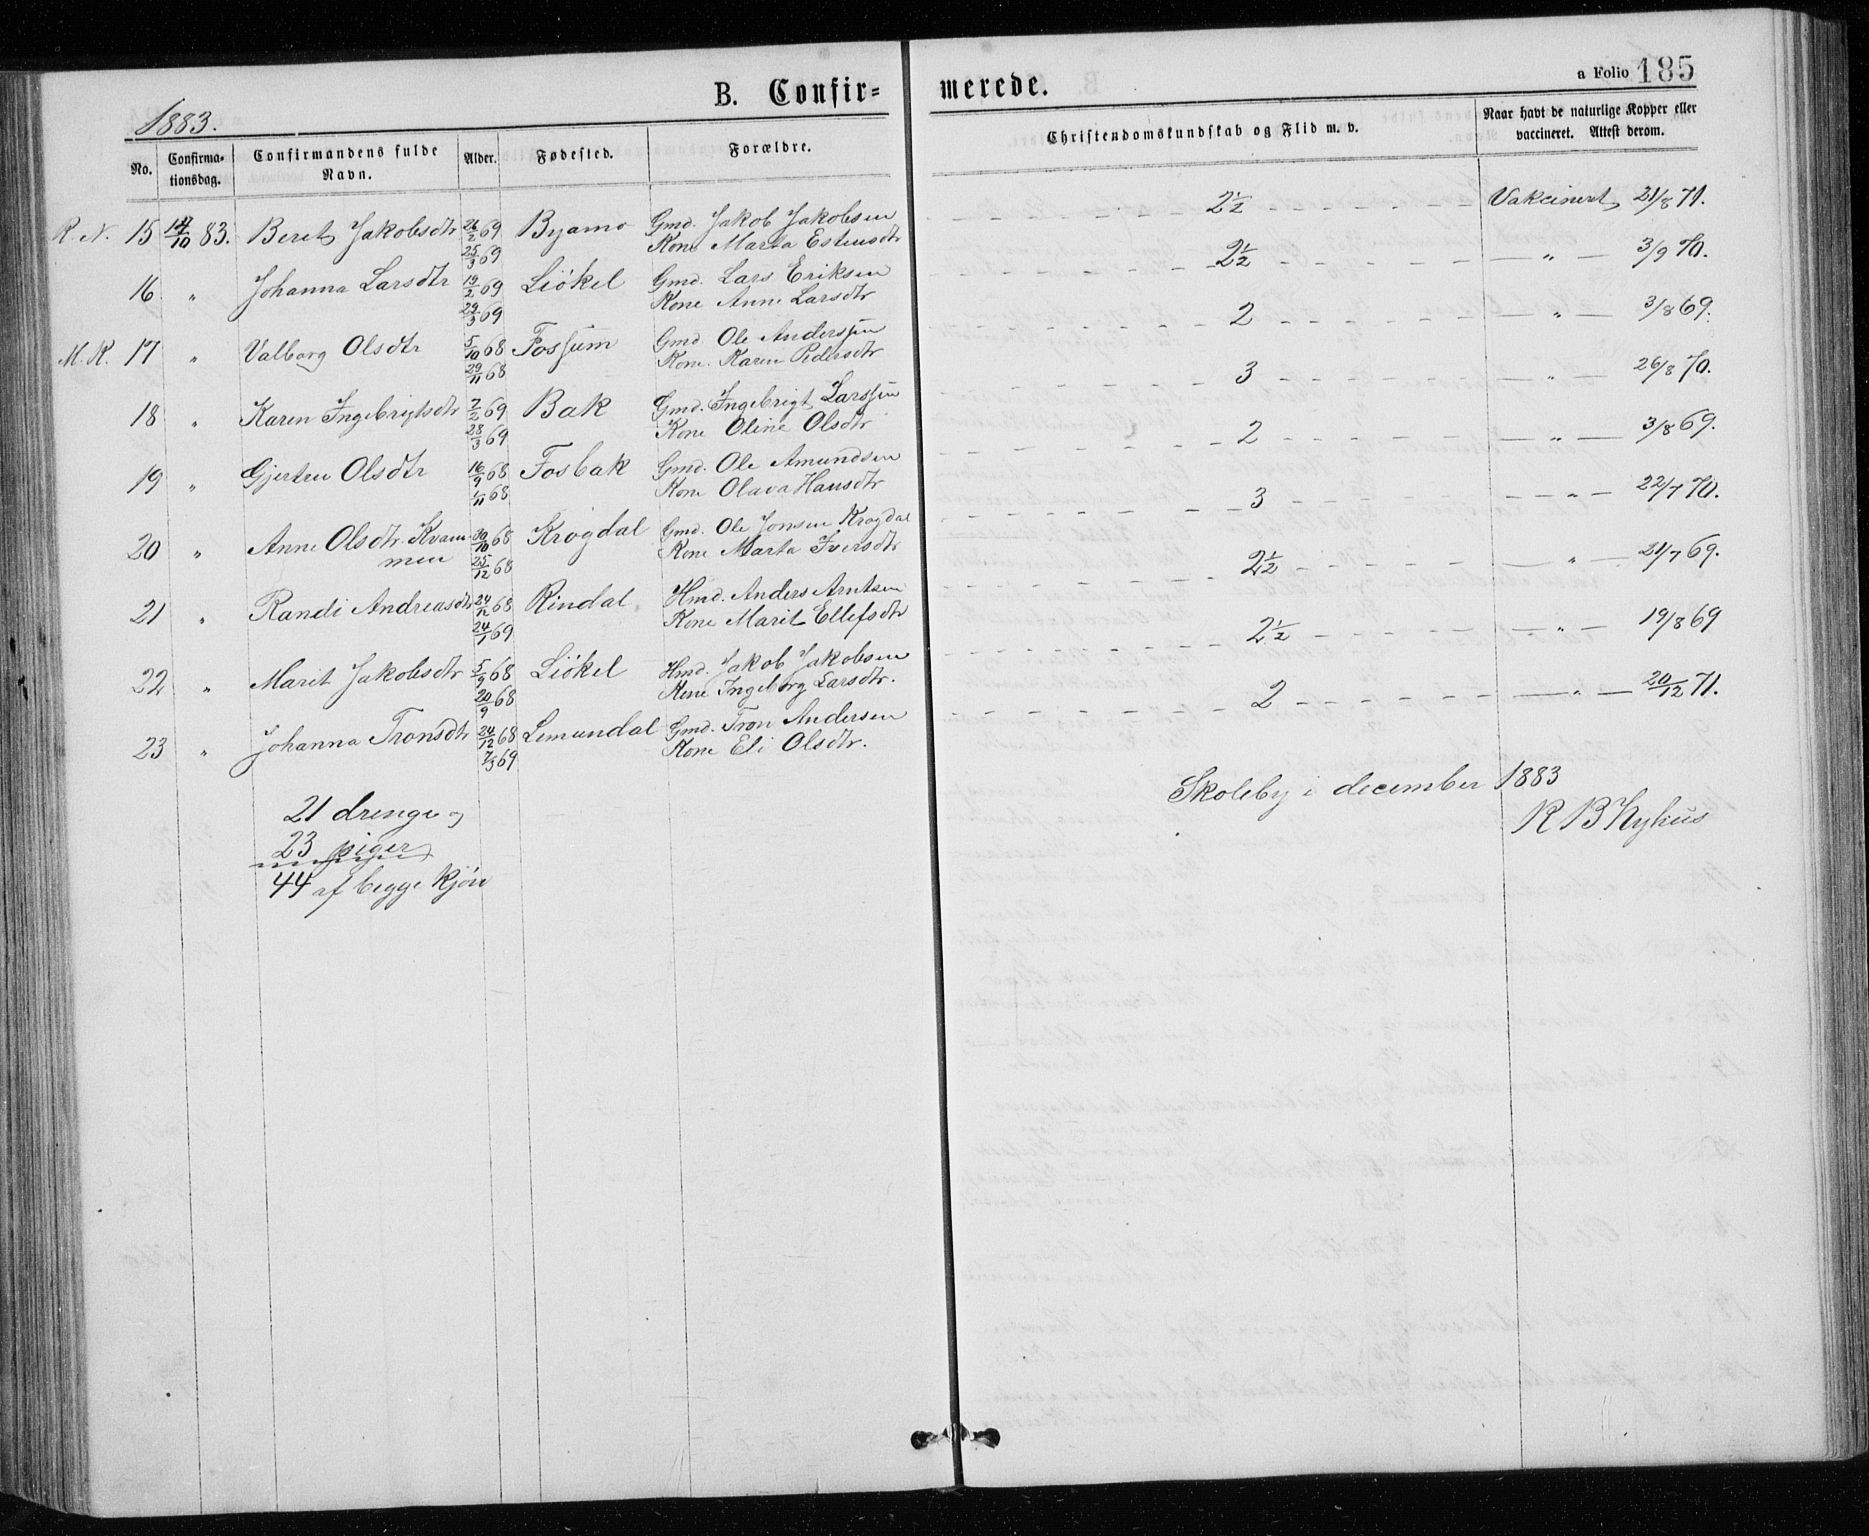 B. Confir=merede.
a Folio 185
1883.
No. Confirma-tionsdag. Confirmandens fulde Navn. Alder. Fødested. Forældre. Christendomskundskab og Flid m. v. Naar havt de naturlige Kopper eller vaccineret. Attest derom.
R. N. 15 14/10 83. Beret Jakobsdtr 26/2 69 Byamo Gmd. Jakob Jakobsen 2½ Vakcinert 21/8 71.
25/3 69 Kone Marta Estensdtr
16 " Johanna Larsdtr 19/2 69 Liökel Gmd. Lars Eriksen 2½ " 3/9 70.
29/3 69 Kone Anne Larsdtr
M. K. 17 " Valborg Olsdtr 5/10 68 Fossum Gmd Ole Anderssen 2 " 3/8 69.
29/11 68 Kone. Karen Pedersdtr
18 " Karen Ingebrigtsdtr 7/2 69 Bak Gmd. Ingebrigt Larssen 3 " 26/8 70.
28/3 69 Kone Oline Olsdtr
19 " Gjertru Olsdtr 16/9 68 Fosbak Gmd. Ole Amundsen 2 " 3/8 69.
1/11 68 Kone Olava Hansdtr
20 " Anne Olsdtr. Kvam- 30/10 68 Krogdal Gmd. Ole Jonsen Krogdal 3 " 22/7 70.
men 25/12 68 Kone Marta Iversdtr
21 " Randi Andreasdtr 24/11 68 Rindal Hmd. Anders Arntsen 2½ " 21/7 69.
24/1 69 Kone Marit Ellefsdtr
22 " Marit Jakobsdtr 5/9 68 Liökel Hmd. Jakob Jakobsen 2½ " 19/8 69
20/9 68 Kone Ingeborg Larsdtr.
23 " Johanna Tronsdtr 24/12 68 Lemundal Gmd. Tron Andersen 2 " 20/12 71.
7/3 69 Kone Eli Olsdtr.
21 drenge og
23 piger
44 af begge kjön
Skoleby i december 1883
R B Nyhus